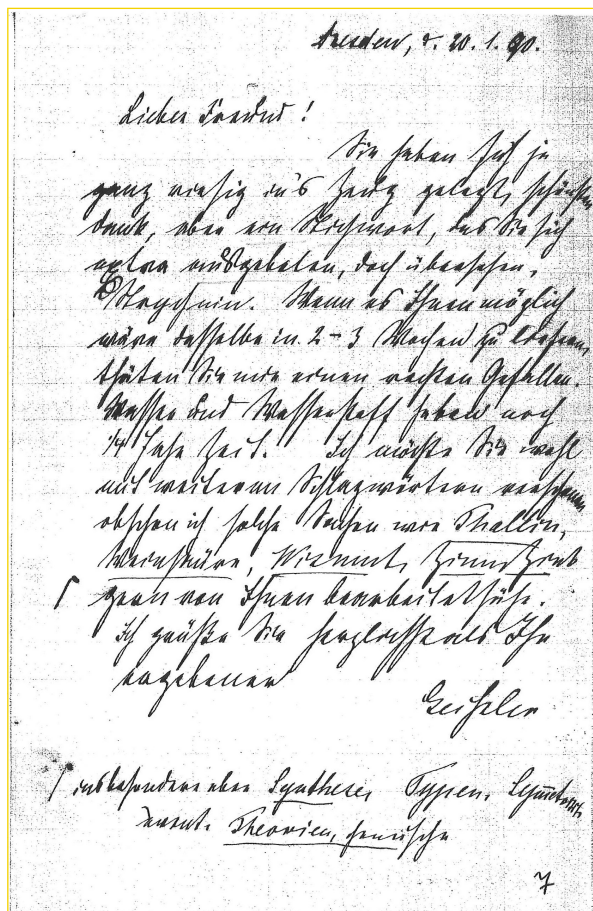 Dresden, d. 20. 1. 90.
Lieber Freund!
Sie haben sich ja
ganz riesig in's Zeug gelegt, schönsten
Dank, aber ein Stichwort, das Sie sich
extra ausgebeten, doch übersehen,
Strychnin. Wenn es Ihnen möglich
wäre dasselbe in 2-3 Wochen zu liefern,
thäten Sie mir einen rechten Gefallen.
Wasser und Wasserstoff haben noch
1/4 Jahr Zeit. Ich möchte Sie wohl
mit weiteren Schlagwörtern verschonen
obschon ich solche Sachen wie Thallin,
Weinsäure, Wismut, Zinn, Zink
gern von Ihnen bearbeitet sähe.
Ich grüße Sie herzlichst als Ihr
ergebener
Geissler
insbesondere aber Synthese, Typen,
event. Theorien, chemische
7